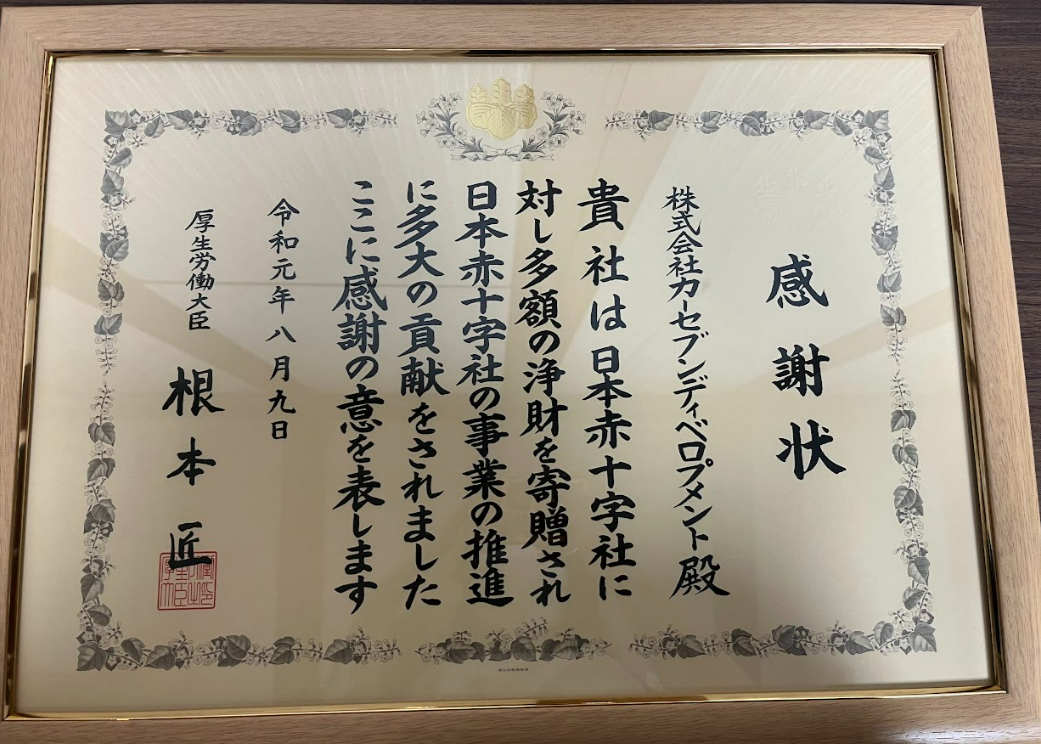 感謝状
株式会社カーセブンディベロプメント殿
貴社は日本赤十字社に
対し多額の浄財を寄贈され
日本赤十字社の事業の推進
に多大の貢献をされました
ここに感謝の意を表します
令和元年八月九日
厚生労働大臣 根本匠